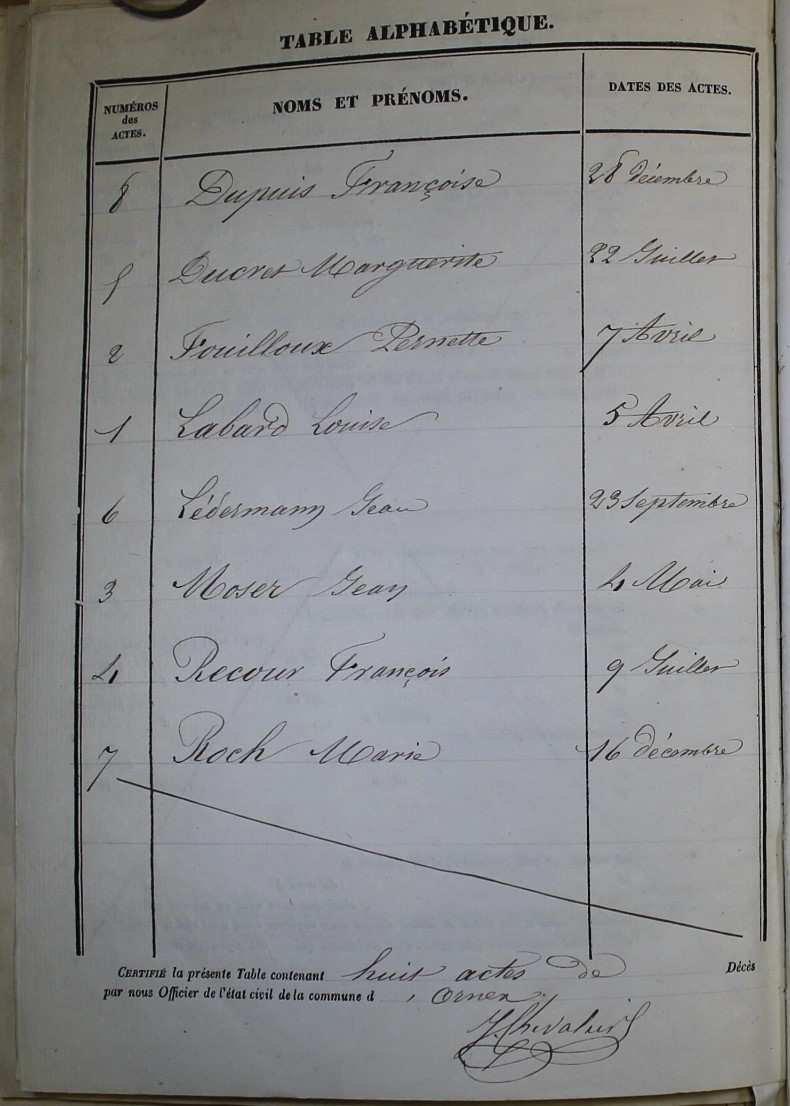 TABLE ALPHABÉTIQUE.
NUMÉROS des ACTES. NOMS ET PRÉNOMS. DATES DES ACTES.
8 Dupuis Françoise 28 décembre
5 Ducret Marguerite 22 Juillet
2 Fouilloux Pernette 7 Avril
1 Labard Louise 5 Avril
6 Lédermann Jean 23 Septembre
3 Moser Jean 4 Mai
4 Recour François 9 Juillet
7 Roch Marie 16 décembre
CERTIFIÉ la présente Table contenant huit actes de Décès
par nous Officier de l'état civil de la commune d'Ornex
J. Chevalier